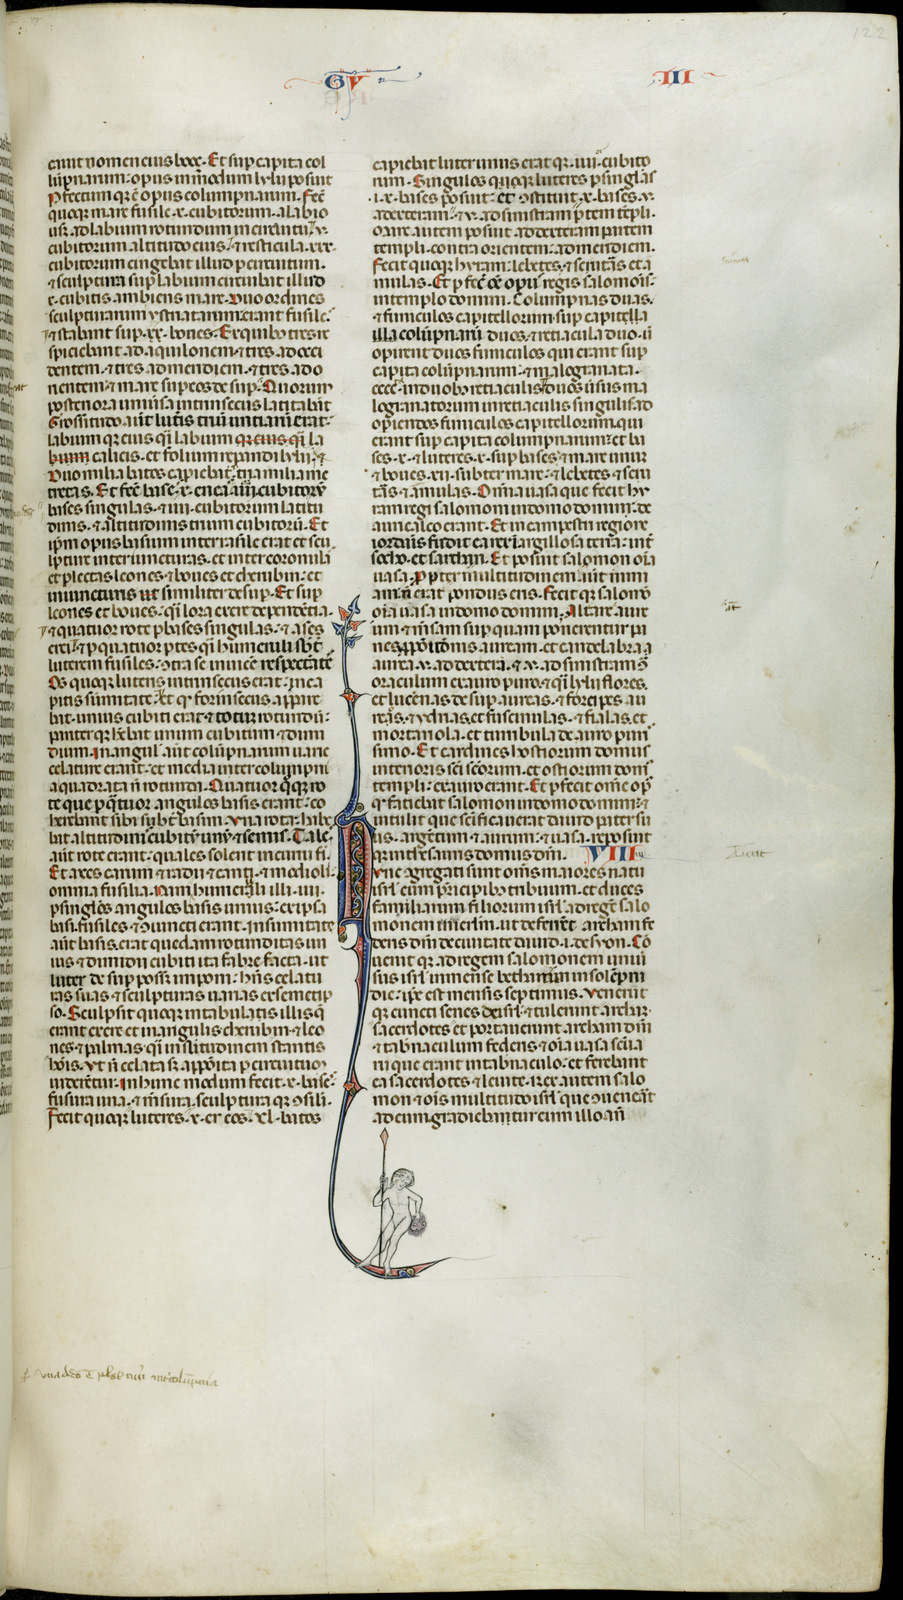 122
GV III
cauit nomen eius booz. Et sup capita col
lūpnarum opus in modum lylii posuit
Pfectum qȝ ē opus columpnarum. Fec̄
quoqȝ mare fusile .x. cubitorum. a labio
usqȝ ad labium rotundum in circuitu. v.
cubitorum altitudo eius. & resticula .xxx.
cubitorum cingebat illud p circuitum.
& sculptura sup labium circuibat illud
x. cubitis ambiens mare. Duo ordines
sculpturarum ystriatarum erant fusile.
& stabant sup .xii. boues. E quibȝ tres re
spiciebant ad aquilonem. & tres ad occi
dentem. & tres ad meridiem. & tres ad o
rientem. & mare sup eos de sup. Quorum
posteriora uniūsa intrinsecus latitabāt
Grossitudo aūt luteris triū untiarū erat.
labium qȝ eius qi labium qȝ eius qi la
bium calicis. et folium repandi lylii. &
Duo milia batos capiebat. tria milia me
tretas. Et fec̄ bases .x. eneas .iiii. cubitorȝ
bases singulas. & iiii. cubitorum latitu
dinis. & altitudinis trium cubitorū. Et
ipm opus basium interrasile erat et scu
lpture inter iuncturas. et inter coronulas
et plectas leones. & boues et cherubin. et
in iuncturis ut similiter desup. Et sup
leones et boues. qi lora ex ere dependētia.
& quatuor rote p bases singulas. & axes
erei. & p quatuor ptes qi humeruli sbt̄
luterem fusiles. ctra se inuicē respectātes
Os quoqȝ luteris intrinsecus erat. in ca
pitis sūmitate. Et qȝ forinsecus appare
bat. unius cubiti erat & totum rotundū.
pariterqȝ habēbat unum cubitum & dimi
dium. In angulis aūt colūpnarum uarie
celature erant. et media intercolumpni
a quadrata nō rotunda. Quatuor qȝqȝ ro
te que p qtuor angulos basis erant. co
herebant sibi subt̄ basim. Vna rota habe
bat altitudinis cubitū unū & semis. Tales
aūt rote erant. quales solent in curru fi.
Et axes earum & radii & canti. & medioli.
omnia fusilia. Nam humeruli illi .iiii.
p singlos angulos basis unius. ex ipsa
basi fusiles & iuncti erant. In summitate
aūt basis. erat quedam rotunditas un
ius & dimidii cubiti ita fabre facta. ut
luter de sup posset imponi. hn̄s celatu
ras suas & sculpturas uarias ex semetip
so. Sculpsit quoqȝ in tabulatis illis qȝ
erant ex ere et in angulis cherubin. & leo
nes & palmas. qi in similitudinem stantis
hōis. ut nō celata sȝ apposita p circuitum
uiderētur. In hunc modum fecit .x. bases.
fusura una. & mensura. sculpturaqȝ cosili.
Fecit quoqȝ luteres .x. ex eos .xl. batos
capiebat luter unus. erat qȝ .iiii. cubito
rum. Singulos quoqȝ luteres p singlas
.i. x. bases posuit. et cstituit .x. bases. v.
ad dexteram. & v. ad sinistram ptem templi.
Mare autem posuit ad dexteram partem
templi. contra orientem. ad meridiem.
Fecit quoqȝ hyram lebetes. & scutras et a
mulas. Et pfec̄ oē opus regis salomonis.
in templo domini. Columpnas duas.
& funiculos capitellorum sup capitella
illa colūpnarū duos. & retiacula duo. ii
opirent duos funiculos qui erant sup
capita colūpnarum. & malogranata.
cccc. in duobȝ retiaculis. duos ūsus ma
logranatorum in retiaculis singulis. ad
opiendos funiculos capitellorum. qui
erant sup capita columpnarum. et ba
ses .x. & luteres .x. sup bases. & mare unum
& boues .xii. subter mare. & lebetes. & scu
tras. & amulas. Omia uasa que fecit hy
ram regi salomoni in domo domini. de
auricalco erant. Et in campestri regione
iordanis fudit ea rex in argillosa terra. int̄
socho. et sarthan. Et posuit salomon oīa
uasa. Ppter multitudinem aūt nimi
am nō erat pondus eris. Fecit qȝ salomō
oīa uasa in domo domini. Altare aure
um & mensam sup quam ponerentur pa
nes ppositionis auream. et candelabra a
urea .v. ad dexterā. & .v. ad sinistram ctra
oraculum ex auro puro. & qi lylii flores.
et lucernas de sup aureas. & forcipes au
reas. & ydrias. et fuscinulas. & fialas. et
mortariola. et turibula de auro puri
simo. Et cardines hostiorum domus
interioris sci scorum. et ostiorum domus
templi. ex auro erant. Et pfecit om̄e opȝ
qd faciebat salomon in domo domini. &
intulit que scificauerat dauid pater su
us. argentum & aurum. & uasa. reposuit
qȝ in thesauris domus dni. VIII
Tunc cgregati sunt omes maiores natu
isrl cum principibȝ tribuum. et duces
familiarum filiorum isrl ad regem salo
monem in ierlm. ut deferrēt archam fe
deris dni de ciuitate dauid .i. de syon. Cō
uenit qȝ ad regem salomonem uniū
sus isrl in mense bethanim in sollēpni
die. ipse est mensis septimus. Venerunt
qȝ cuncti senes de isrl. & tulerunt archam
sacerdotes et portauerunt archam dni
& tabnaculum federis. & oīa uasa scua
rii que erant in tabnaculo. et ferebant
ea sacerdotes & leuite. Rex autem salo
mon & oīs multitudo isrl que cuenerāt
ad eum. gradiebantur cum illo an̄